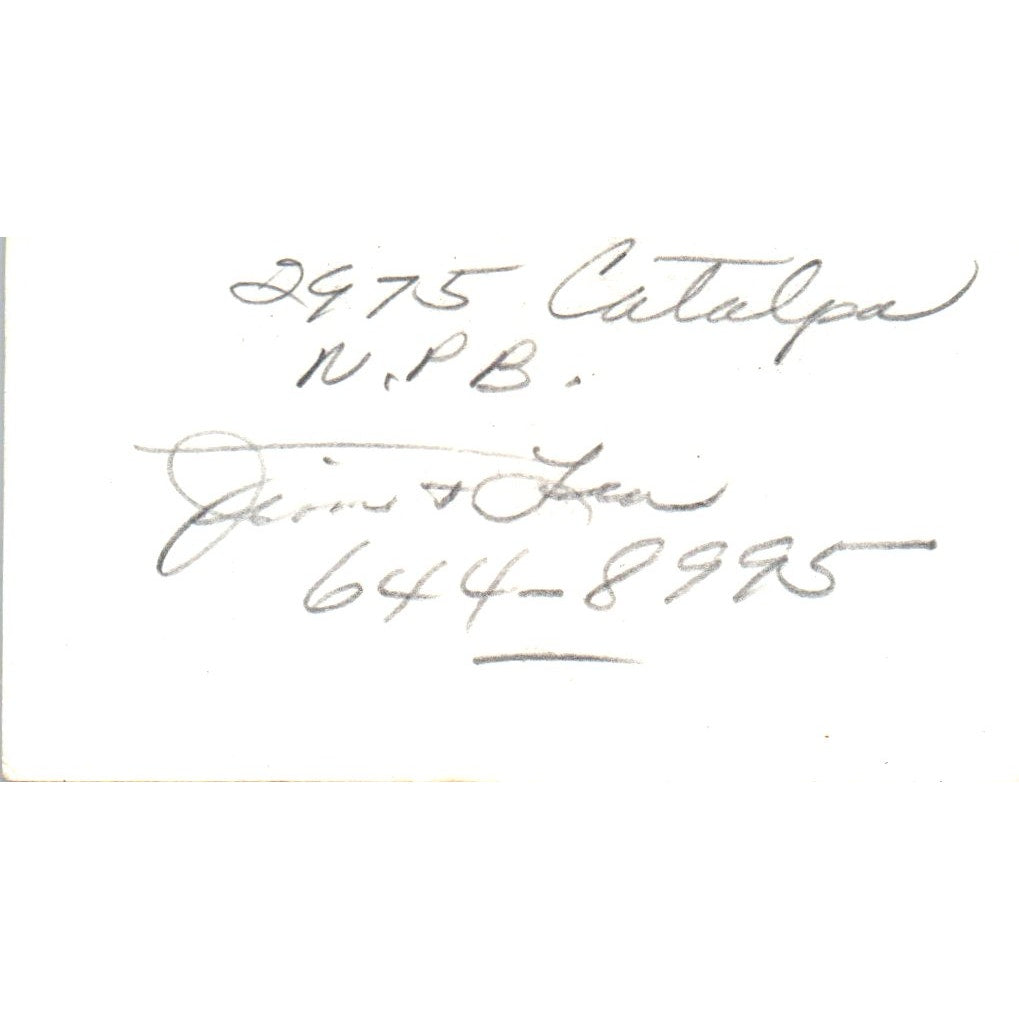 2975 Catalpa
N.P.B.
Jim + Lea
644-8995